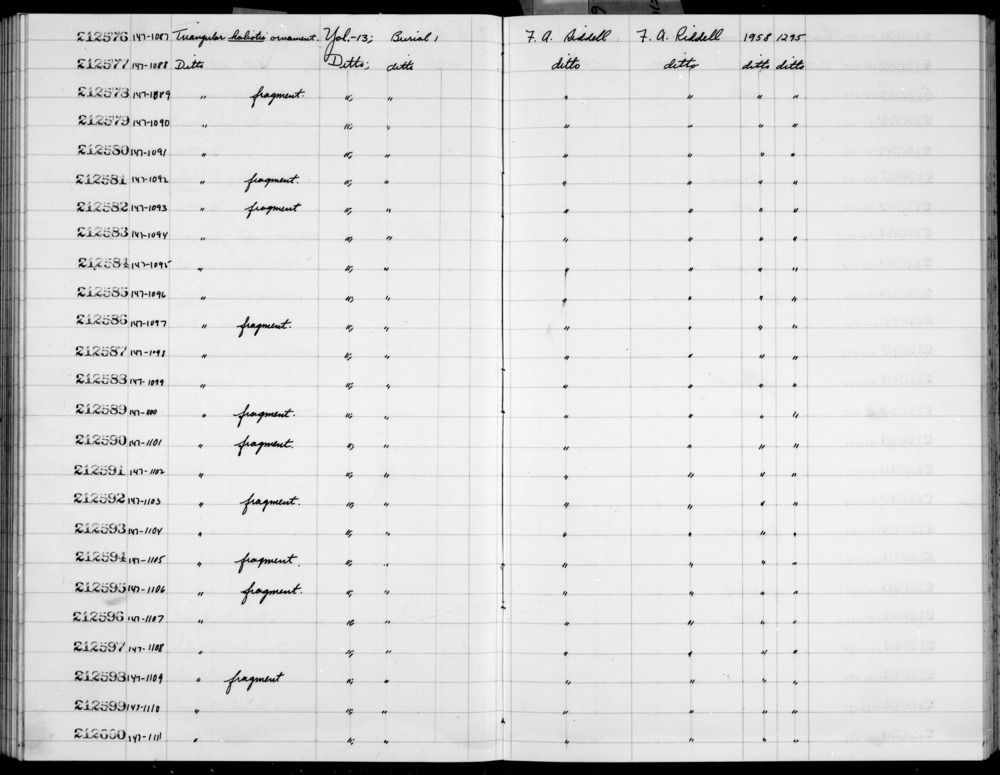 212576 147-1087 Triangular haliotis ornament. Yol.-13; Burial 1 F. A. Riddell F. A. Riddell 1958 1295
212577 147-1088 Ditto Ditto; ditto ditto ditto ditto ditto
212578 147-1089 " fragment. "; " " " " "
212579 147-1090 " "; " " " " "
212580 147-1091 " "; " " " " "
212581 147-1092 " fragment. "; " " " " "
212582 147-1093 " fragment "; " " " " "
212583 147-1094 " "; " " " " "
212584 147-1095 " "; " " " " "
212585 147-1096 " "; " " " " "
212586 147-1097 " fragment. "; " " " " "
212587 147-1098 " "; " " " " "
212588 147-1099 " "; " " " " "
212589 147-1100 " fragment. "; " " " " "
212590 147-1101 " fragment. "; " " " " "
212591 147-1102 " "; " " " " "
212592 147-1103 " fragment. "; " " " " "
212593 147-1104 " "; " " " " "
212594 147-1105 " fragment. "; " " " " "
212595 147-1106 " fragment. "; " " " " "
212596 147-1107 " "; " " " " "
212597 147-1108 " "; " " " " "
212598 147-1109 " fragment "; " " " " "
212599 147-1110 " "; " " " " "
212600 147-1111 " "; " " " " "